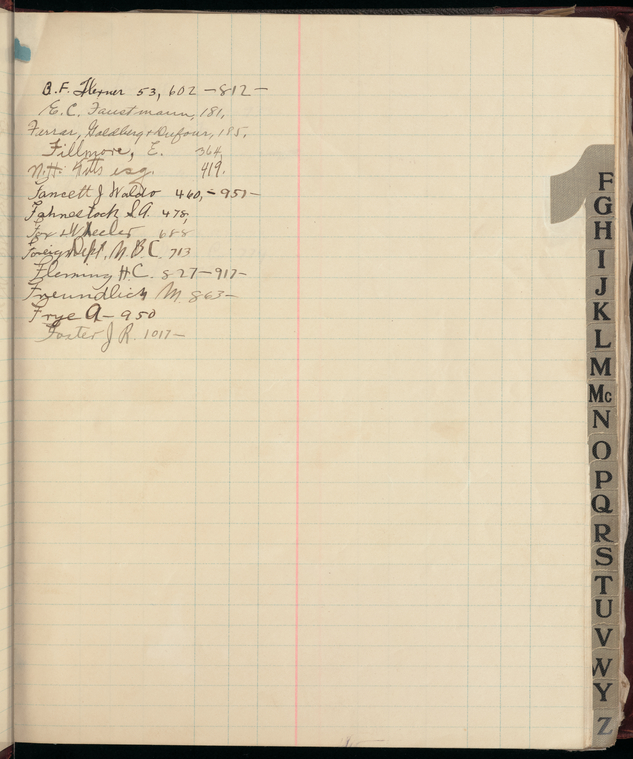 B.F. 53, 602 – 812 –
E.C. Faustmann, 181,
Ferrar, Goldberg + Dufour, 185,
Fillmore, E. 364,
N.H. esq. 419.
J Waldo 460, – 951 –
Fahnestock S.A. 475,
Fox & Wheeler 688
Foreign Dept. N.B.C. 713
Fleming H.C. 827 – 917 –
Freundlich M. 863 –
Frye A – 950
Foster J R. 1017 –
F
G
H
I
J
K
L
M
Mc
N
O
P
Q
R
S
T
U
V
W
Y
Z